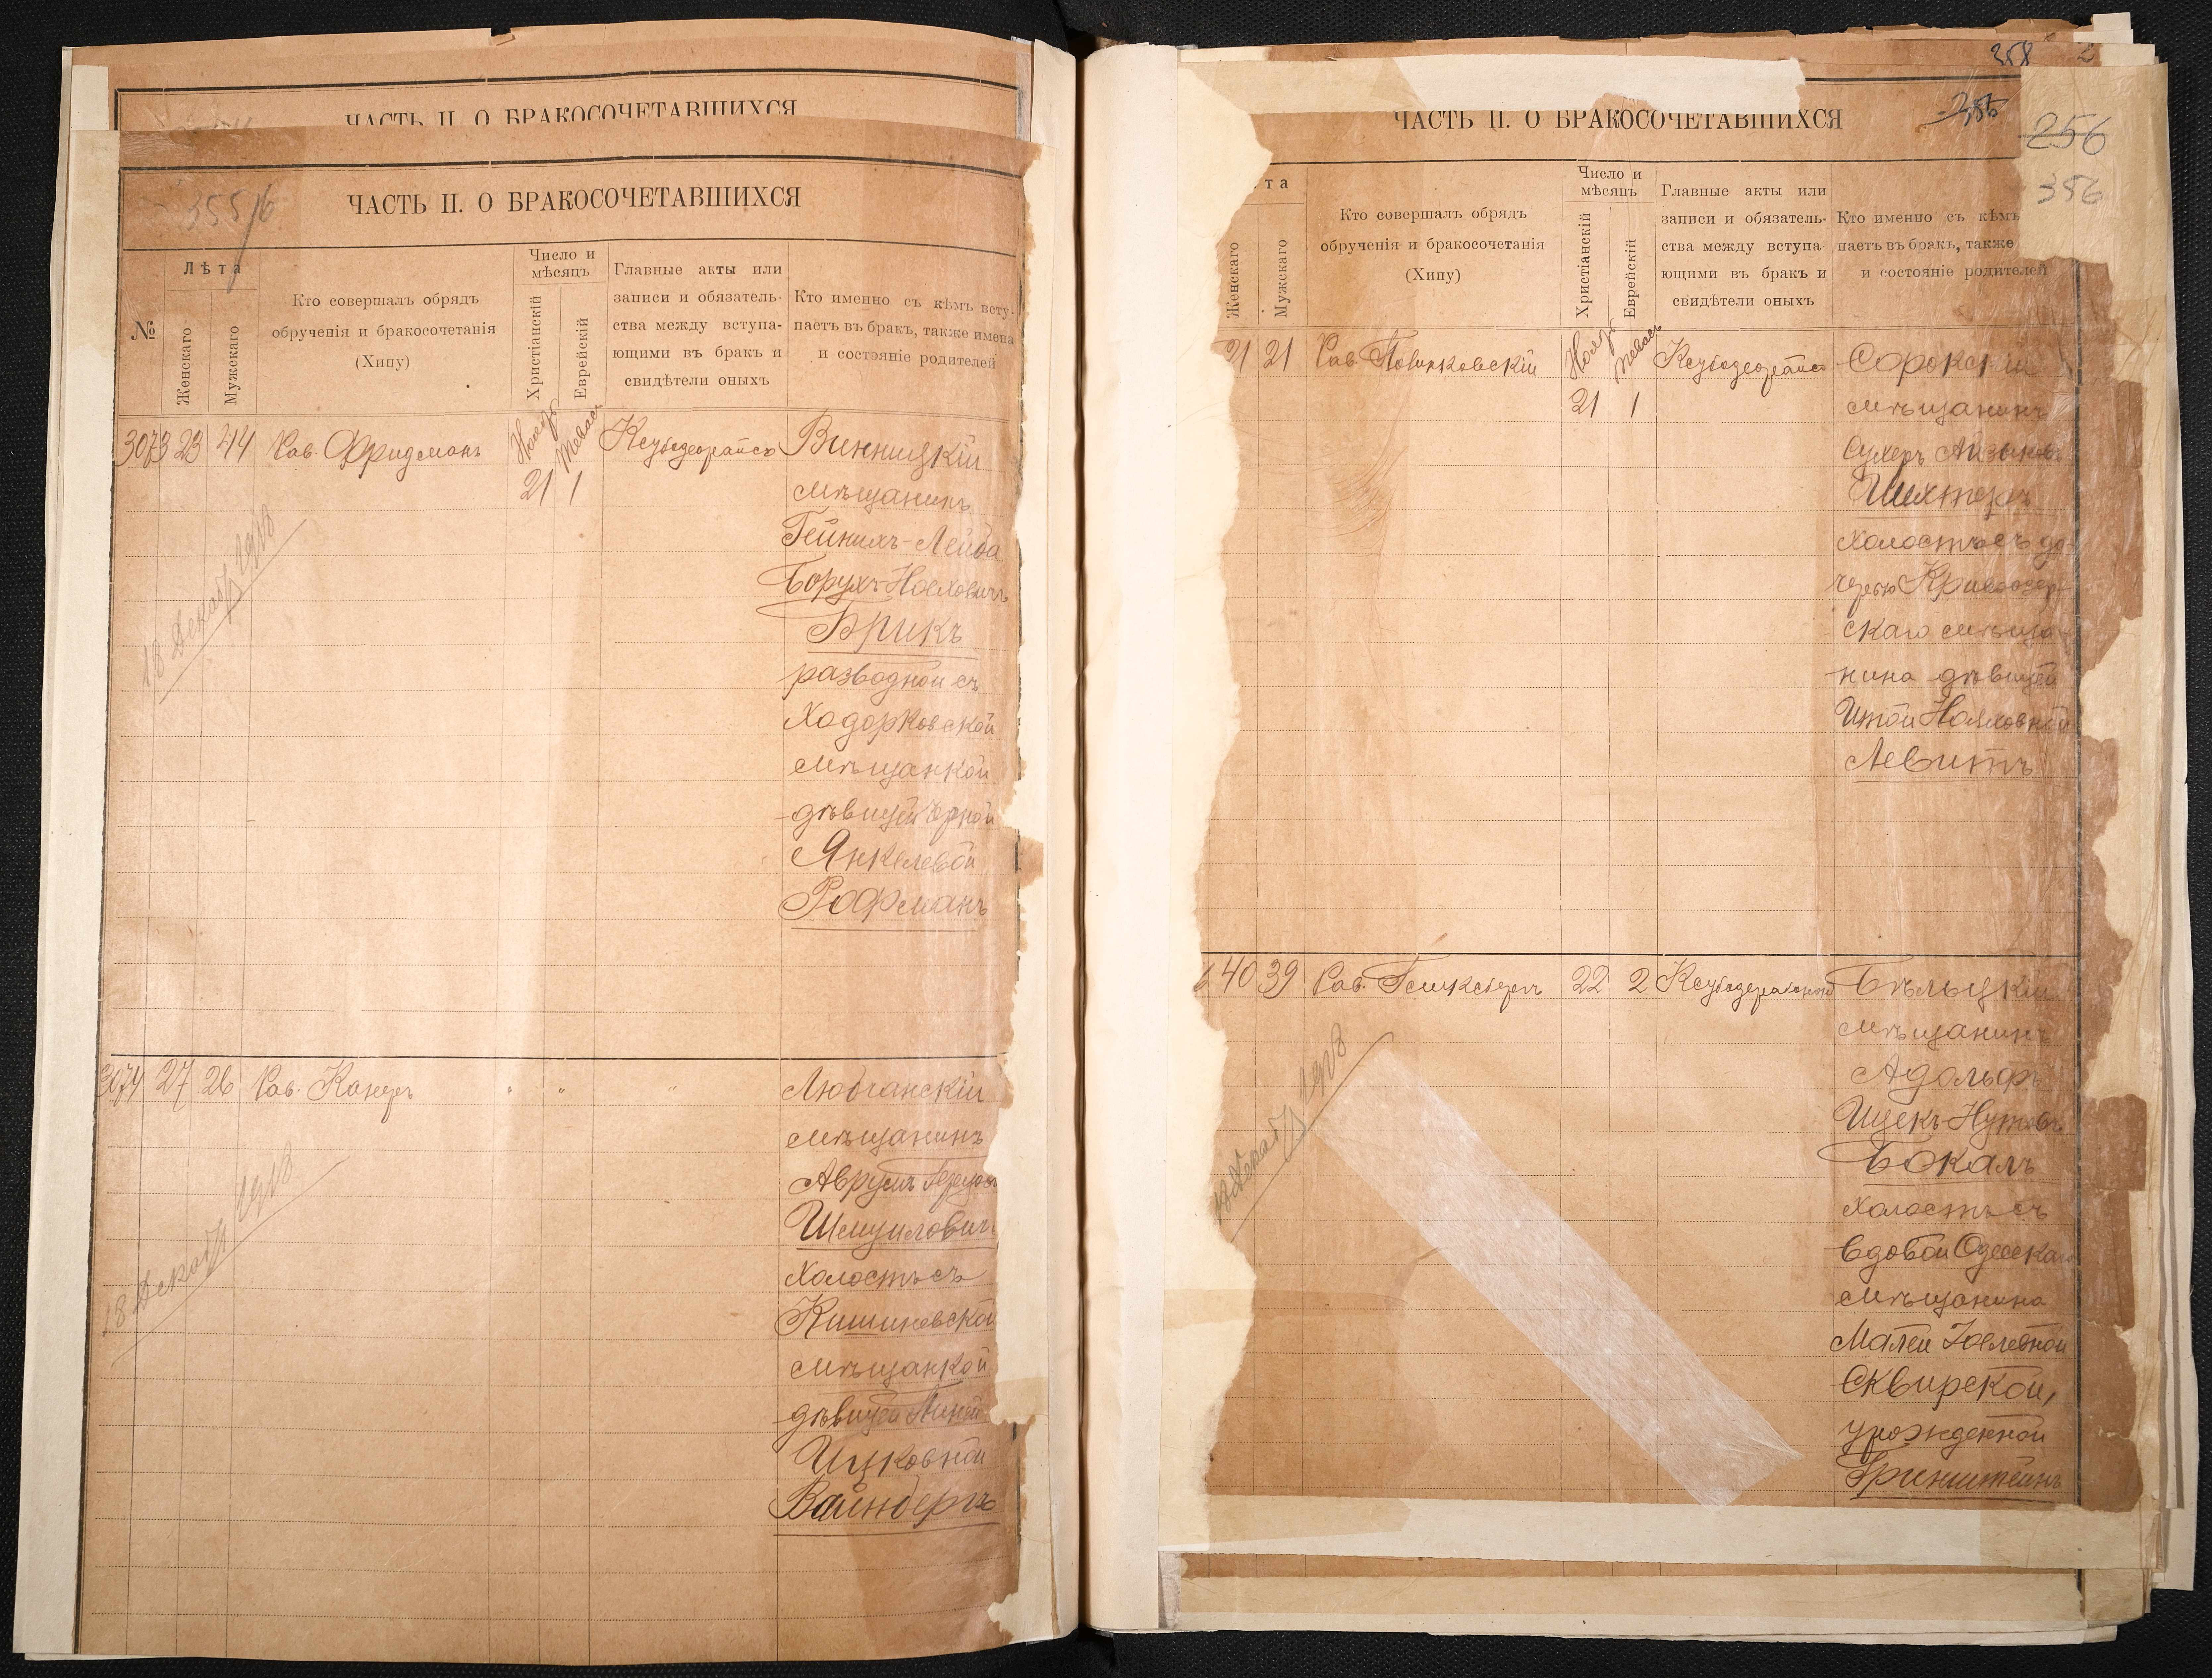 ЧАСТЬ II. О БРАКОСОЧЕТАВШИХСЯ
ЧАСТЬ II. О БРАКОСОЧЕТАВШИХСЯ
№
Лѣта
Женскаго
Мужскаго
Кто совершалъ обрядъ
обрученія и бракосочетанія
(Хипу)
Число и
мѣсяцъ
Христіанскій
Еврейскій
Главные акты или
записи и обязатель-
ства между вступа-
ющими въ бракъ и
свидѣтели оныхъ
Кто именно съ кѣмъ всту-
паетъ въ бракъ, также имена
и состояніе родителей
3073 23 44 Рав. Фридманъ
21 1
Винницкій
мѣщанинъ
Гейнихъ-Лейба
Борухъ-Ноеховичъ
Брикъ
разводной съ
Ходорковской
мѣщанкой
дѣвицей
Янкелевой
Рофманъ
18 Декабр 1918
3074 27 26 Рав. Канеръ " " "
мѣщанинъ
Аврумъ
Шмуиловичъ
Холостъ съ
Кишиневской
мѣщанкой
дѣвицей
Ицковной
Вайнбергъ
18 Декабр 1918
358
356
256
356
ЧАСТЬ II. О БРАКОСОЧЕТАВШИХСЯ
та
Женскаго
Мужскаго
Кто совершалъ обрядъ
обрученія и бракосочетанія
(Хипу)
Число и
мѣсяцъ
Христіанскій
Еврейскій
Главные акты или
записи и обязатель-
ства между вступа-
ющими въ бракъ и
свидѣтели оныхъ
Кто именно съ кѣмъ
паетъ въ бракъ, также
и состояніе родителей
21 21 Рав.
21 1
Сорокскій
мѣщанинъ
Сухеръ
Шехтеръ
холостъ съ до-
черью Кривоозер-
скаго мѣща-
нина дѣвицей
Итой
Левитъ
6 40 39 Рав. 22 2
Бѣльцкій
мѣщанинъ
Адольфъ
Ицекъ-Нутовъ
Бокалъ
холостъ съ
вдовой Одесскаго
мѣщанина
Малей
Сквирской,
урожденной
Гринштейнъ